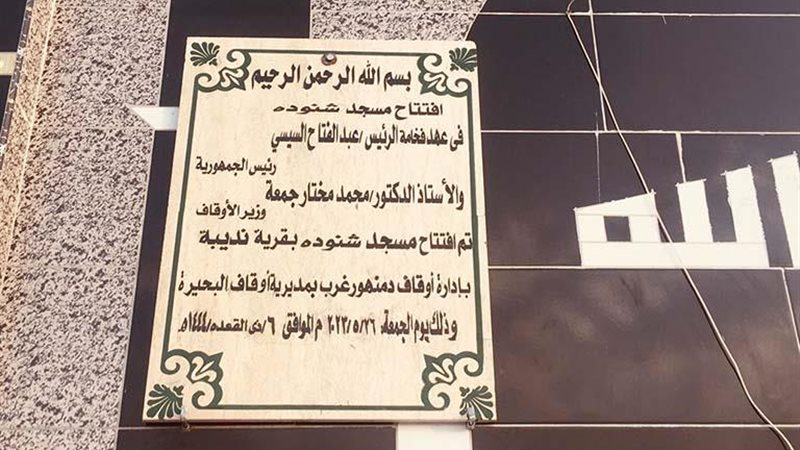 بسم الله الرحمن الرحيم
افتتاح مسجد شنوده
فى عهد فخامة الرئيس / عبد الفتاح السيسي
رئيس الجمهورية
والأستاذ الدكتور / محمد مختار جمعة
وزير الأوقاف
تم افتتاح مسجد شنوده بقرية نديبة
بإدارة أوقاف دمنهور غرب بمديرية أوقاف البحيرة
وذلك يوم الجمعة ٢٠٢٣/٥/٢٦ م الموافق ٦ / ذى القعده / ١٤٤٤هـ
الله